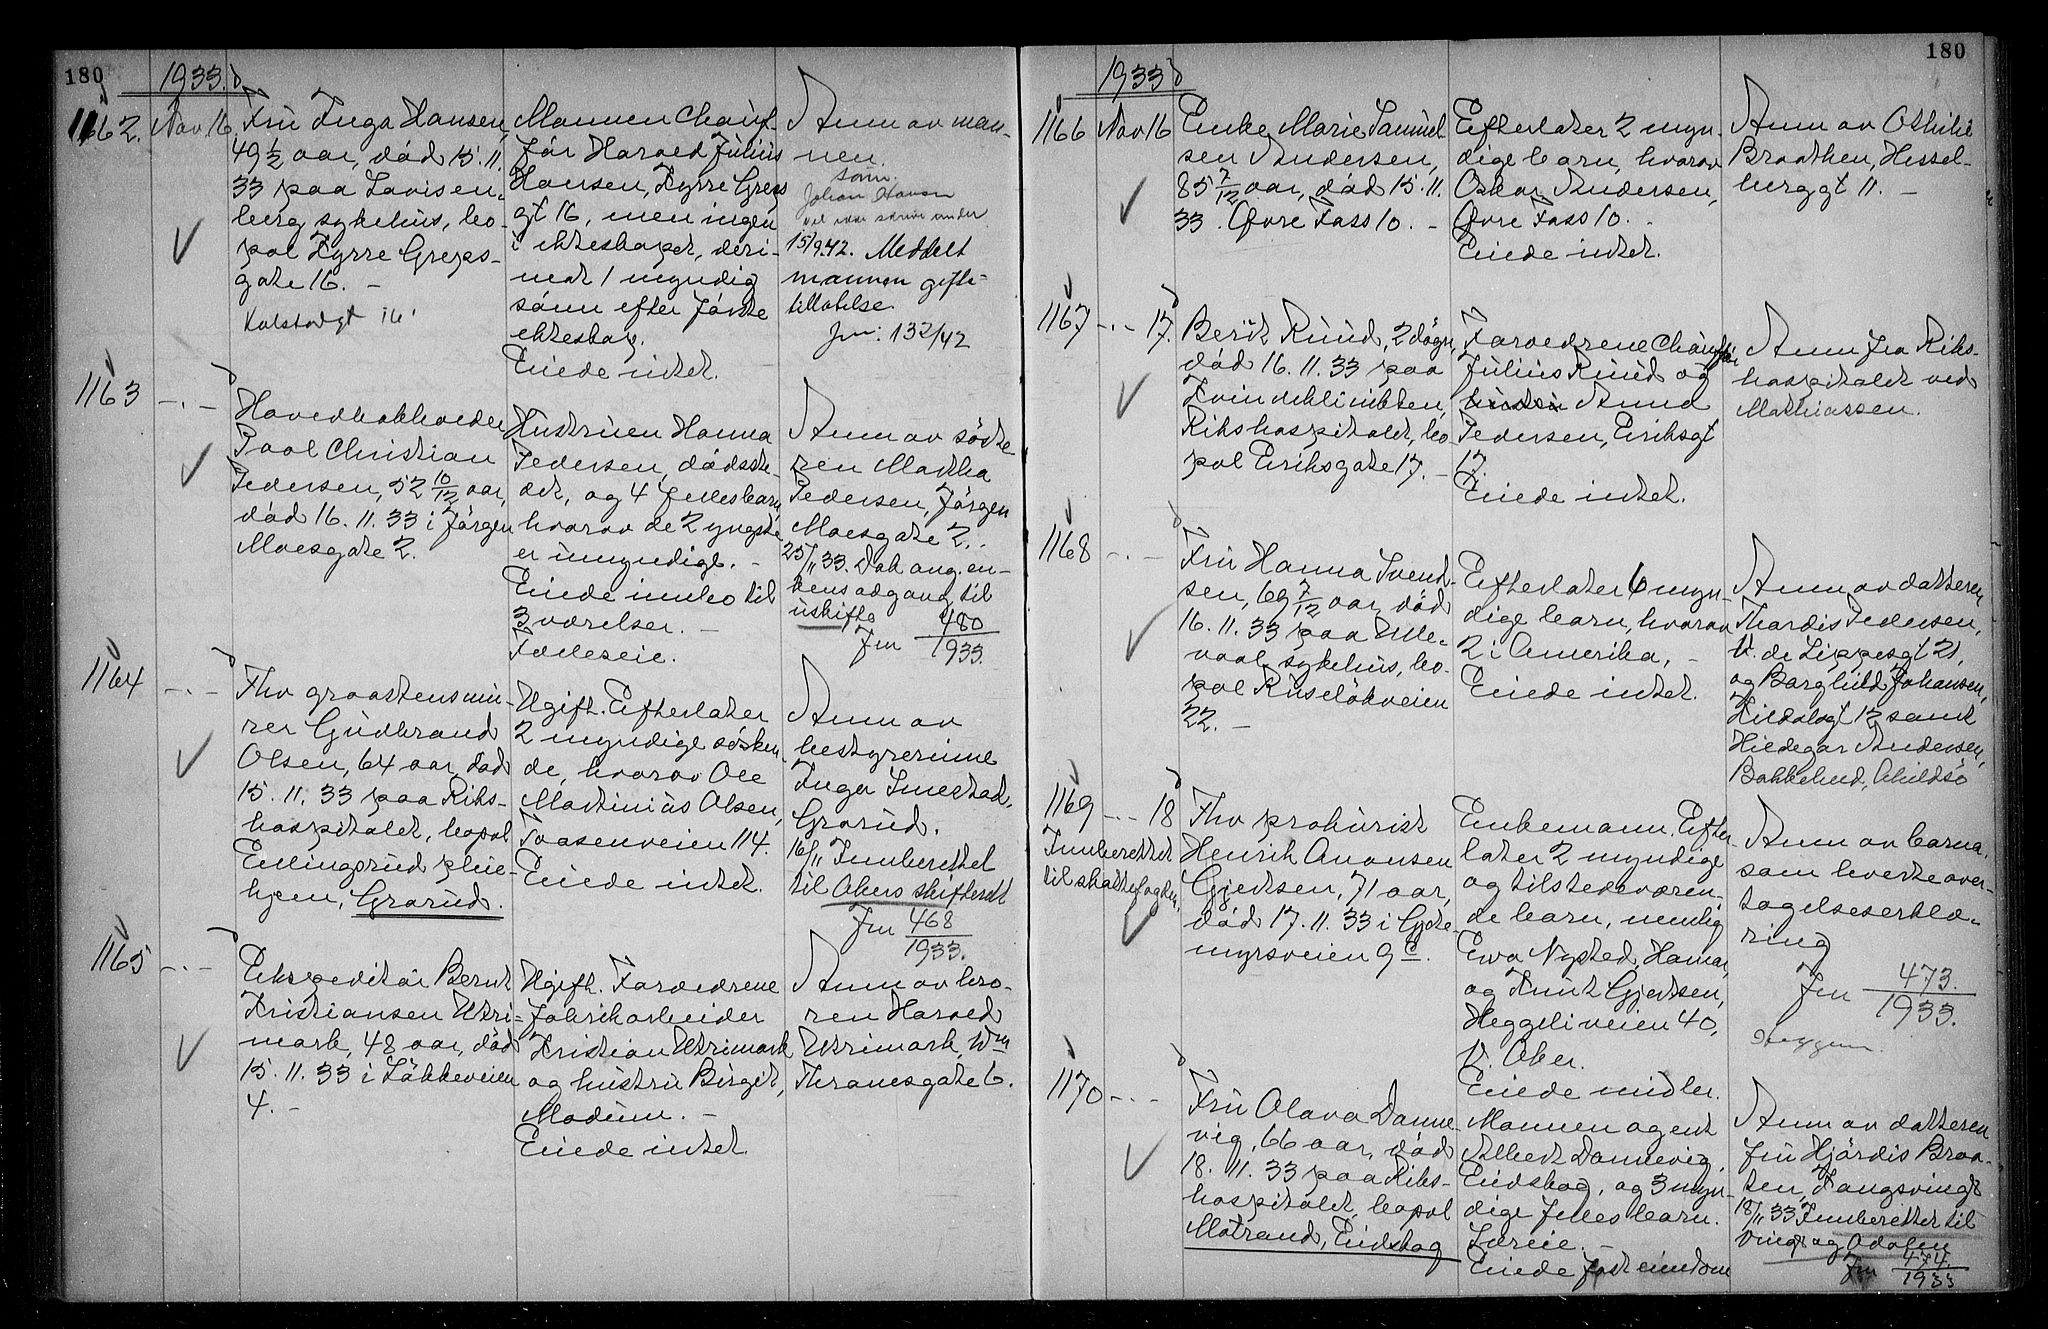 180
1933.
1162. Nov 16
Fru Inga Hansen,
49 1/2 aar, død 15.11.
33 paa Lovisen-
berg sykehus, bo-
pol Fyrre Greps-
gate 16. -
16
Mannen chauf-
før Harald Julius
Hansen, Fyrre Greps
gt 16, men ingen
i ekteskapet, deri-
mot 1 myndig
sønn efter første
ekteskap.
Eiede intet.
Anm av man-
nen.
sønn.
Johan Hansen
vil ikke skrive under
15/9.42. Meddelt
mannen gifte-
tillatelse
Jnr: 132/42
1163 -.-
Hovedbokholder
Paal Christian
Pedersen, 52 10/12 aar,
død 16.11.33 i Jørgen
Moesgate 2.
Hustruen Hanna
Pedersen, dødsste-
det, og 4 fellesbarn,
hvorav de 2 yngste
er umyndige. -
Eiede innbo til
3 værelser. -
Felleseie.
Anm av søste
ren Martha
Pedersen, Jørgen
Moesgate 2.
25/11 33. Dok ang. en-
kens adgang til
uskifte
Jnr 480/1933.
1164 -.-
Fhv graastensmu-
rer Gudbrand
Olsen, 64 aar, død
15.11.33 paa Riks-
hospitalet, bopol
Ellingsrud pleie-
hjem, Grorud.
Ugift. Efterlater
2 myndige søsken-
de, hvorav Ole
Martinius Olsen,
Taasenveien 114.
Eiede intet.
Anm av
bestyrerinne
Inga Smestad,
Grorud.
16/11 Innberettet
til Akers skifterett
Jnr 468/1933.
1165 -.-
Ekspeditør Bernt
Kristiansen Utri-
mark, 48 aar, død
15.11.33 i Løkkeveien
4. -
Ugift. Foreldrene
fabrikarbeider
Kristian Utrimark
og hustru Birgit,
Modum. -
Eiede intet.
Anm av bro-
ren Harald
Utrimark, Wm
Thranesgate 6.
180
1933
1166 Nov 16
Enke Marie Samuel-
sen Andersen,
85 7/12 aar, død 15.11.
33. Øvre Foss 10. -
Efterlater 2 myn-
dige barn, hvorav
Oskar Andersen,
Øvre Foss 10. -
Eiede intet.
Anm av Othilie
Braathen, Hessel-
berggt 11. -
1167 -.- 17.
Berit Ruud, 2 døgn,
død 16.11.33 paa
Kvindeklinikken,
Rikshospitalet, bo-
pol Eriksgate 17. -
Foreldrene Chauffør
Julius Ruud og
hustru Aund
Pedersen, Eriksgt
17.
Eiede intet.
Anm fra Riks-
hospitalet ved
Mathiassen.
1168 -.-
Fru Hanna Svend-
sen, 69 7/12 aar, død
16.11.33 paa Ulle-
vaal sykehus, bo-
pol Ruseløkveien
22. -
Efterlater 6 myn-
dige barn, hvorav
2 i Amerika. -
Eiede intet.
Anm av datteren
Thordis Pedersen,
v. de Lippesgt 21,
og Borghild Johansen,
Hildalsgt 12 samt
Hildegar Andersen,
Bakkelund,
1169 -.- 18
Innberettet
til skattefogden.
Fhv prokurist
Henrik Anonsen
Gjertsen, 71 aar,
død 17.11.33 i Gjete-
myrsveien 9 c.
Enkemann. Efter
later 2 myndige
og tilstedeværen-
de barn, nemlig
Ewa Nysted, Hamar,
og Knut Gjertsen,
Heggeliveien 40,
V. Aker.
Eiede midler.
Anm av barna,
som hverke over-
tagelseserklæ-
ring
Jnr 473/1933.
1170 -.-
Fru Olava Danne-
vig, 66 aar, død
18.11.33 paa Riks-
hospitalet, bopol
Matrand, Eidskog
Mannen agent
Albert Dannevig,
Eidskog, og 3 myn-
dige fellesbarn.
Særeie. -
Eiede fast eiendom
Anm av datteren
fru Hjørdis Braa-
ten, Kongsvinger
18/11 33 Innberettet til
Vinger og Odalen
Jnr 474/1933